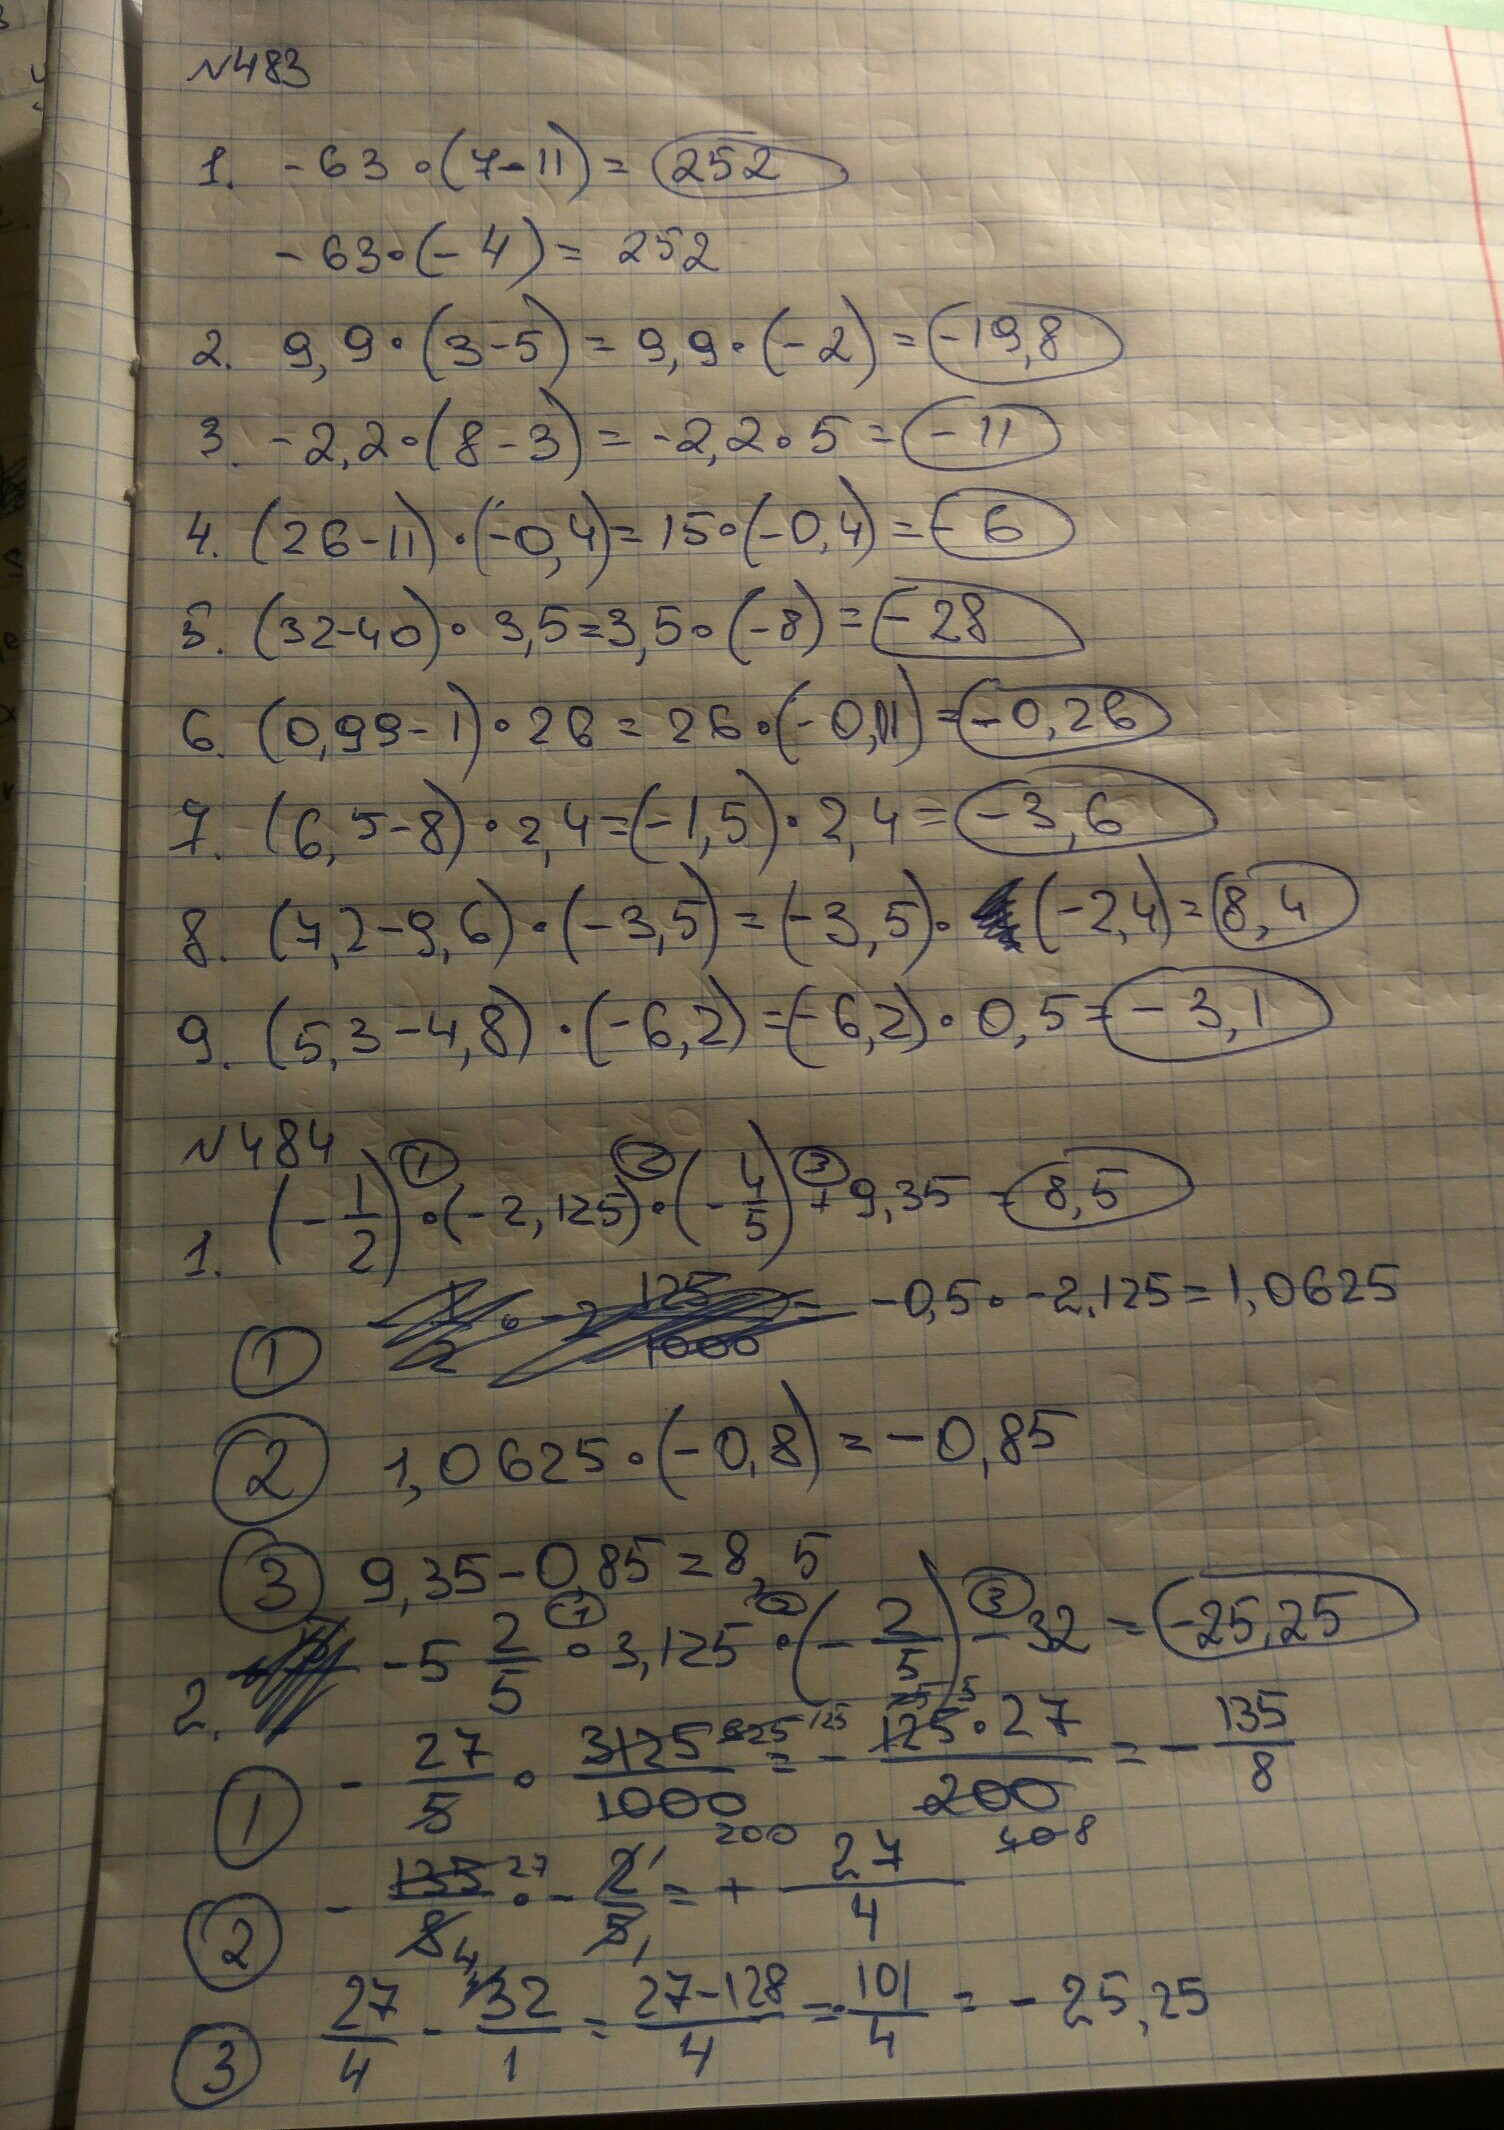 N483
1. -63·(7-11)=252
-63·(-4)=252
2. 9,9·(3-5)=9,9·(-2)=-19,8
3. -2,2·(8-3)=-2,2·5=-11
4. (26-11)·(-0,4)=15·(-0,4)=-6
5. (32-40)·3,5=3,5·(-8)=-28
6. (0,99-1)·26=26·(-0,01)=-0,26
7. (6,5-8)·2,4=(-1,5)·2,4=-3,6
8. (7,2-9,6)·(-3,5)=(-3,5)·(-2,4)=8,4
9. (5,3-4,8)·(-6,2)=(-6,2)·0,5=-3,1
N484
1. (-1/2)①·(-2,125)②·(-4/5)③+9,35=8,5
① -0,5·-2,125=1,0625
② 1,0625·(-0,8)=-0,85
③ 9,35-0,85=8,5
2. -5 2/5 ①·3,125 ②·(-2/5) ③-32=-25,25
① -27/5·3125/1000=-125·27/200=-135/8
② -135/8·-2/5=+27/4
③ 27/4-32/1=27-128/4=-101/4=-25,25